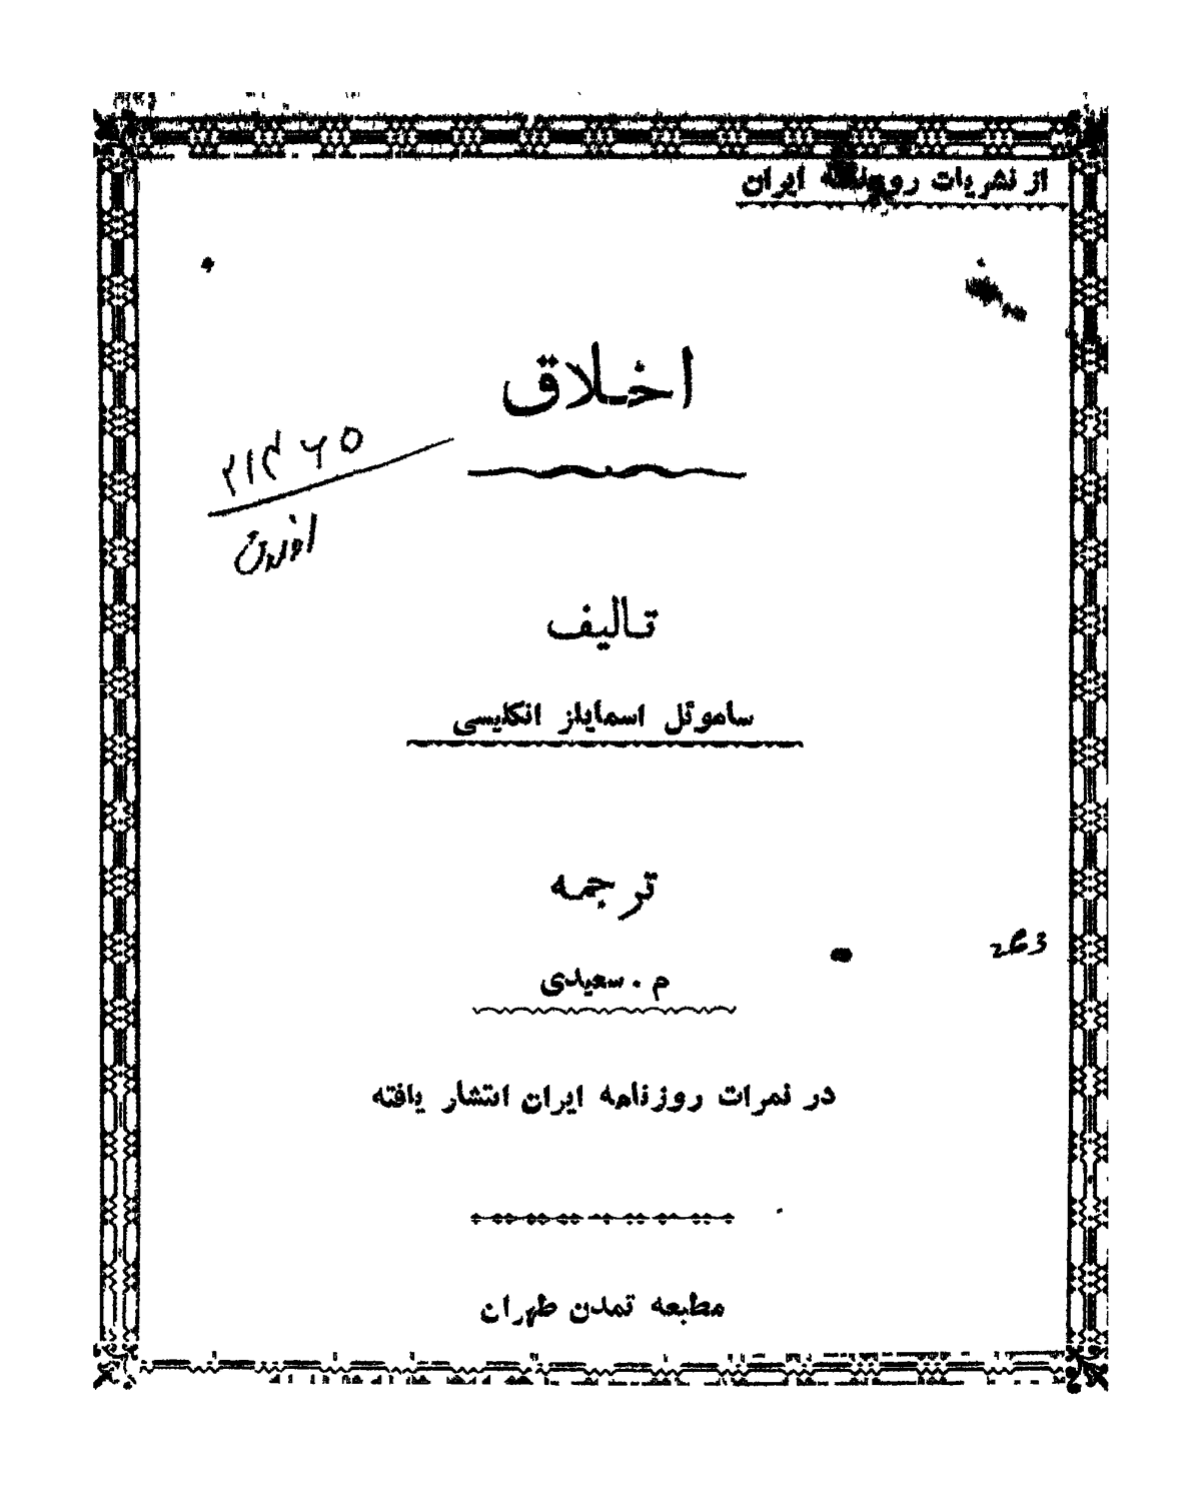 از نشریات روزنامه ایران
اخلاق
۲۱۴۶۵
تالیف
ساموئل اسمایلز انگلیسی
ترجمه
م . سعیدی
در نمرات روزنامه ایران انتشار یافته
مطبعه تمدن طهران